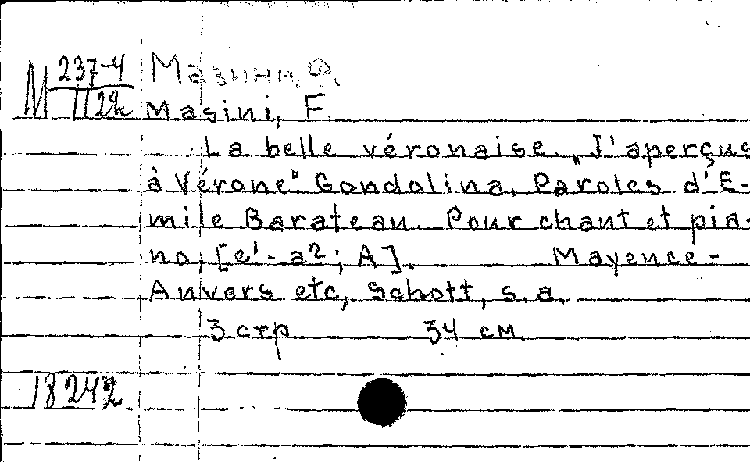 М 237-4 Мазини, Ф.
1122 Masini, F.
La belle véronaise. „J'aperçus
à Vérone" Gondolina. Paroles d'E-
mile Barateau. Pour chant et pia-
no. [e¹-a²; A]. Mayence-
Anvers etc, Schott, s.a.
3 стр 34 см
18242